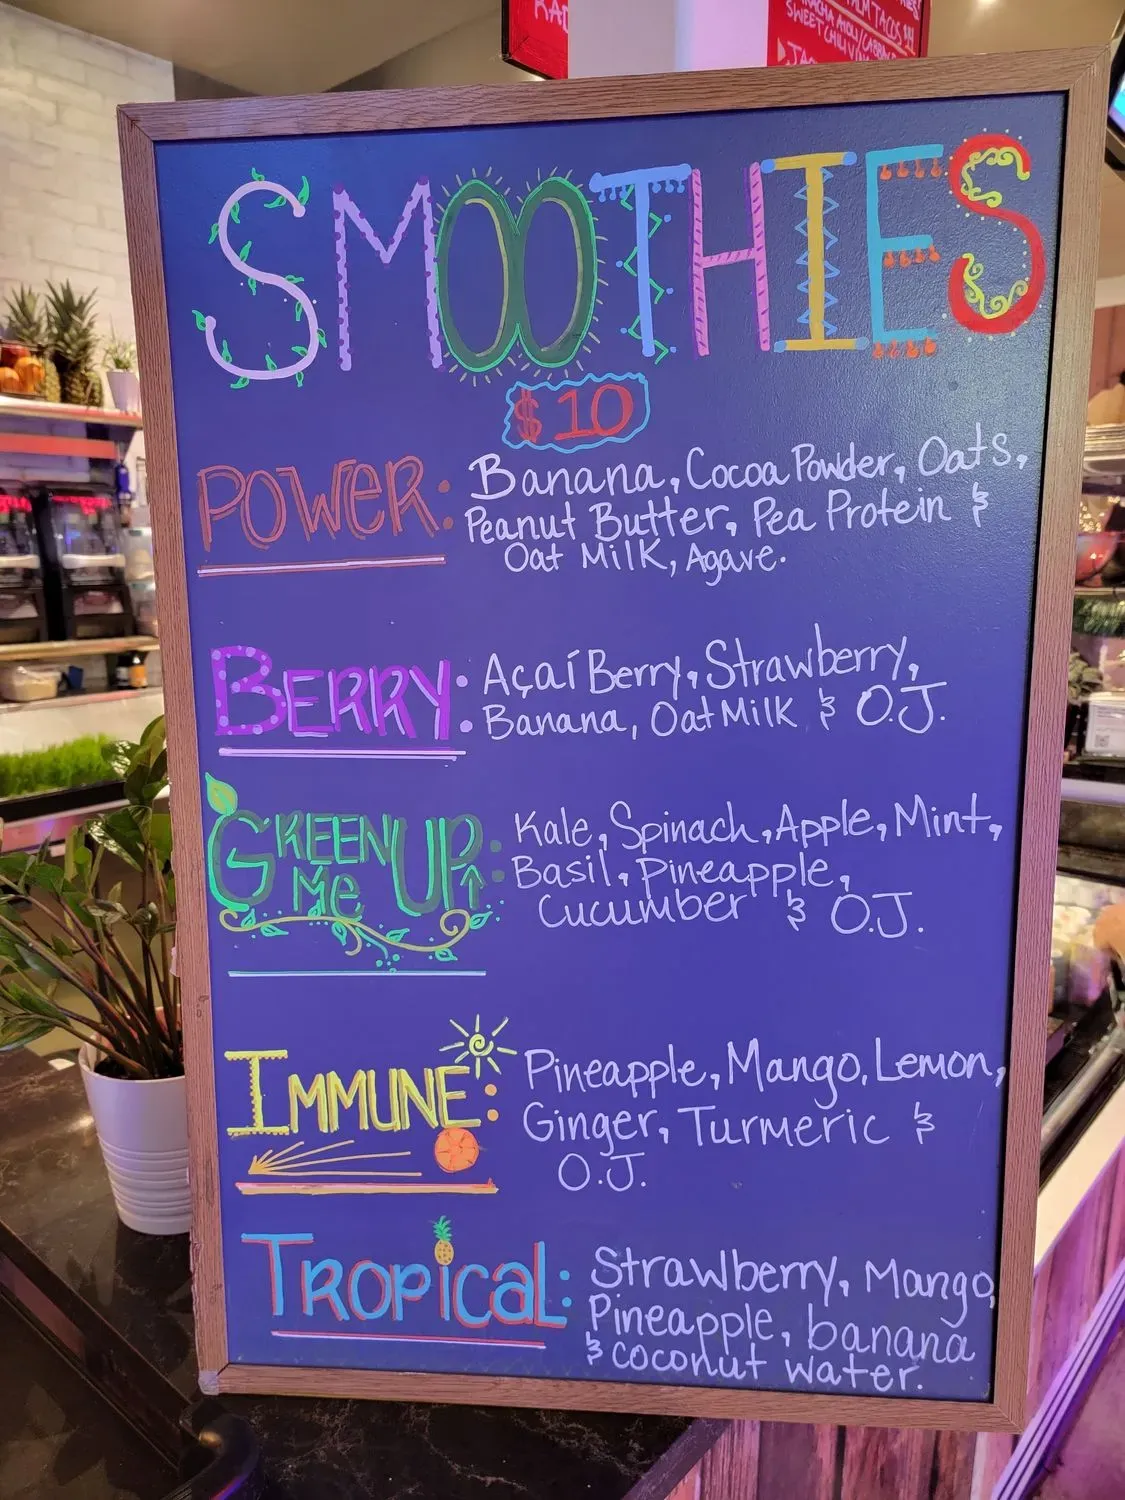 RAD
PALM TACOS $
SRIRACHA AIOLI/CABBAGE
SWEET CHILI VIN
SMOOTHIES
$10
POWER: Banana, Cocoa Powder, Oats,
Peanut Butter, Pea Protein &
Oat Milk, Agave.
BERRY: Açaí Berry, Strawberry,
Banana, Oat Milk & O.J.
GREEN ME UP: Kale, Spinach, Apple, Mint,
Basil, Pineapple,
Cucumber & O.J.
IMMUNE: Pineapple, Mango, Lemon,
Ginger, Turmeric &
O.J.
TROPICAL: Strawberry, Mango,
Pineapple, banana
& coconut water.